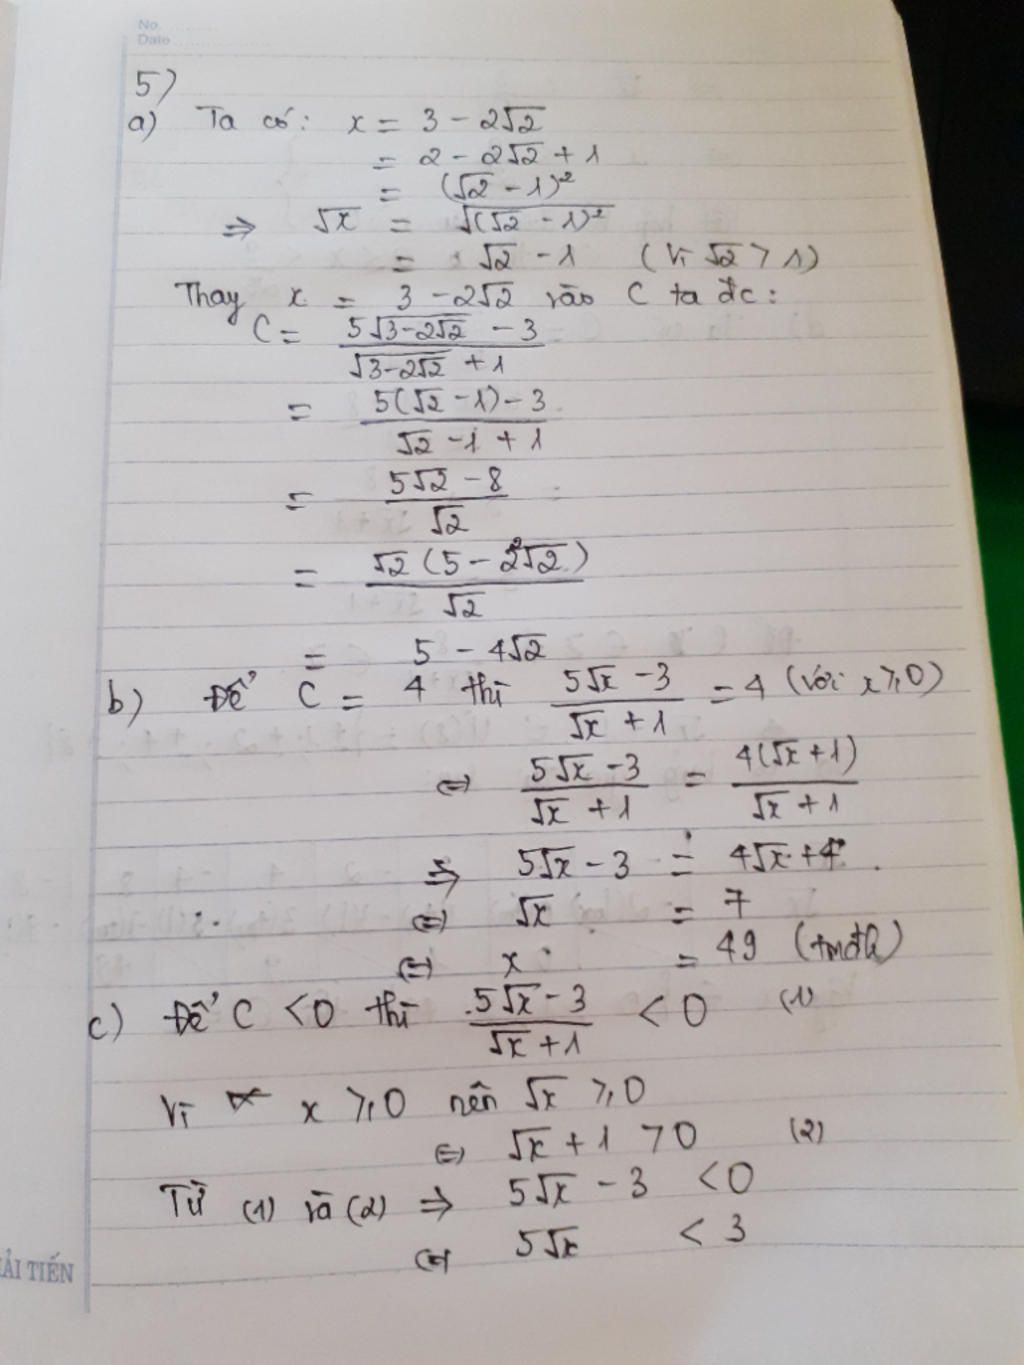 No.
Date
5)
a) Ta có: x = 3 - 2√2
= 2 - 2√2 + 1
= (√2 - 1)²
⇒ √x = √(√2 - 1)²
= √2 - 1 (Vì √2 > 1)
Thay x = 3 - 2√2 vào C ta đc:
C = (5√(3-2√2) - 3)/(√(3-2√2) + 1)
= (5(√2 - 1) - 3)/(√2 - 1 + 1)
= (5√2 - 8)/√2
= √2 (5 - 2²√2)/√2
= 5 - 4√2
b) Để C = 4 thì (5√x - 3)/(√x + 1) = 4 (với x ≥ 0)
⇔ (5√x - 3)/(√x + 1) = 4(√x + 1)/(√x + 1)
⇒ 5√x - 3 = 4√x + 4
⇔ √x = 7
⇔ x = 49 (tmđk)
c) Để C < 0 thì (5√x - 3)/(√x + 1) < 0 (1)
Vì x ≥ 0 nên √x ≥ 0
⇔ √x + 1 > 0 (2)
Từ (1) và (2) ⇒ 5√x - 3 < 0
⇔ 5√x < 3
ẢI TIẾN